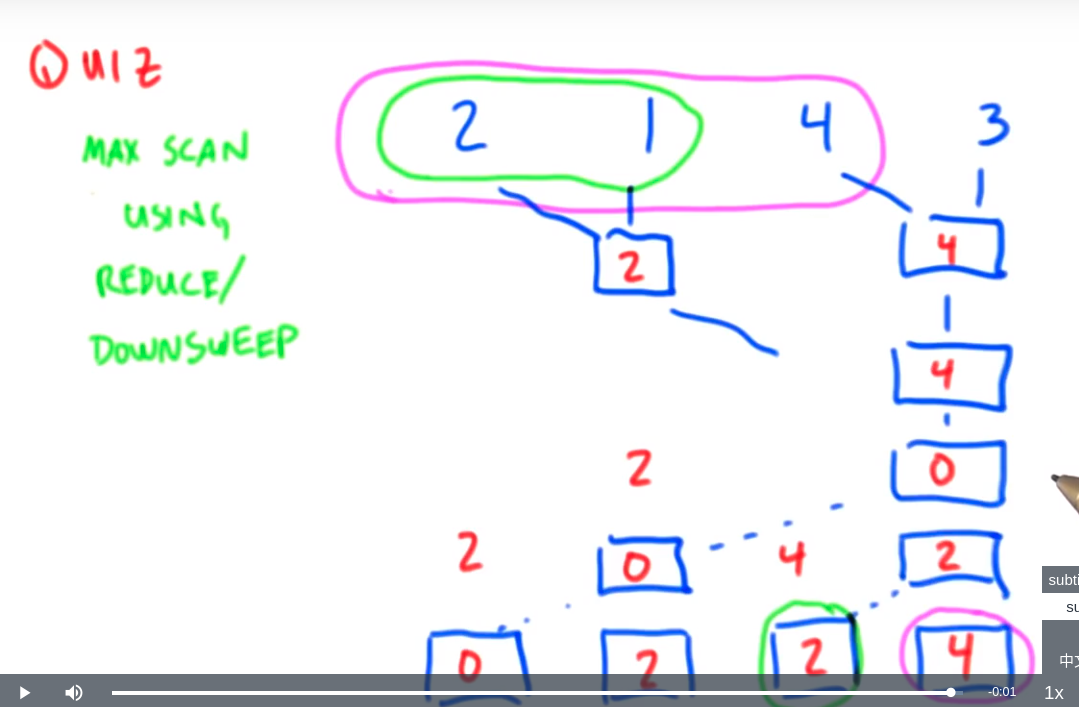 QUIZ
MAX SCAN
USING
REDUCE/
DOWNSWEEP
2 1 4 3
2 4
4
2 0
2 0 4 2
0 2 2 4
subti
su
中文
-0:01 1x